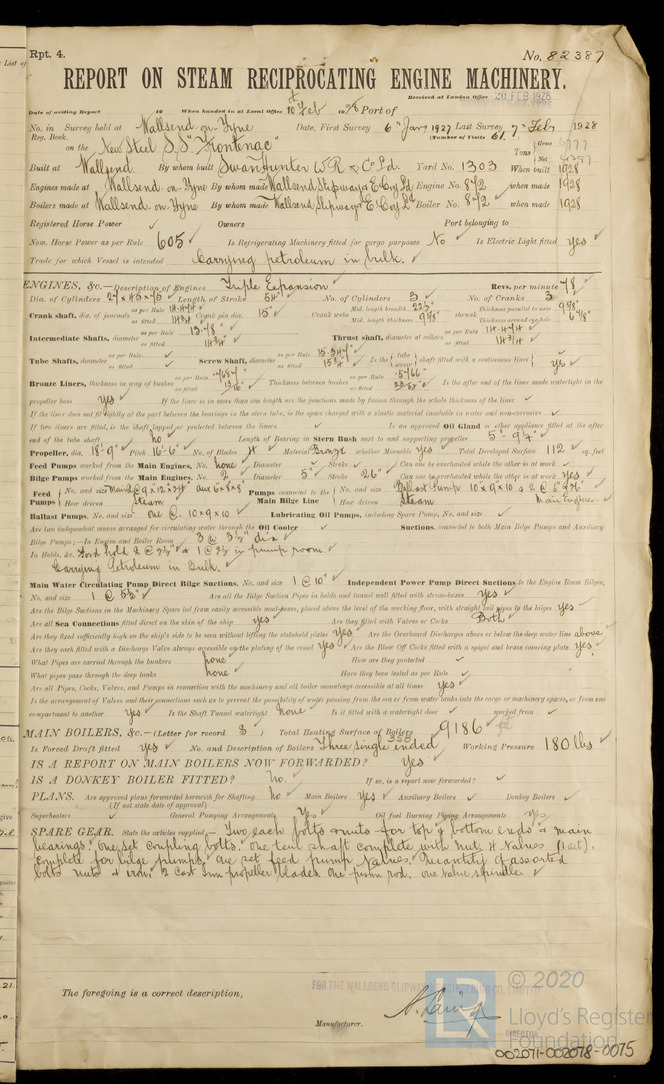 List of
Rpt. 4.
No. 82387
REPORT ON STEAM RECIPROCATING ENGINE MACHINERY.
Received at London Office 20 FEB 1928
Date of writing Report 19 When handed in at Local Office 10 Feb 1928 Port of
No. in Survey held at Wallsend-on-Tyne Date, First Survey 6th Jany 1927 Last Survey 7th Feb 1928
Reg. Book. (Number of Visits 61
on the New Steel S.S. "Frontenac" Tons Gross Net
Built at Wallsend. By whom built Swan Hunter W.R. & Co Ld. Yard No. 1303 When built 1928
Engines made at Wallsend-on-Tyne By whom made Wallsend Slipway & E. Coy Ld Engine No. 872 when made 1928
Boilers made at Wallsend-on-Tyne By whom made Wallsend Slipway & E. Coy Ld Boiler No. 872 when made 1928
Registered Horse Power Owners Port belonging to
Nom. Horse Power as per Rule 605 Is Refrigerating Machinery fitted for cargo purposes No Is Electric Light fitted yes
Trade for which Vessel is intended Carrying petroleum in bulk.
ENGINES, &c.—Description of Engines Triple Expansion Revs. per minute 78
Dia. of Cylinders 27 x 45 x 75 Length of Stroke 54" No. of Cylinders 3 No. of Cranks 3
Crank shaft, dia. of journals as per Rule 14.474 as fitted 14¾ Crank pin dia. 15" Crank webs Mid. length breadth Mid. length thickness 9⅝" shrunk Thickness parallel to axis 9⅝" Thickness around eye-hole 6⅞"
Intermediate Shafts, diameter as per Rule 13.78" as fitted 14¾" Thrust shaft, diameter at collars as per Rule 14.474" as fitted 14¾"
Tube Shafts, diameter as per Rule as fitted Screw Shaft, diameter as per Rule as fitted Is the tube screw shaft fitted with a continuous liner yes
Bronze Liners, thickness in way of bushes as per Rule as fitted Thickness between bushes as per Rule as fitted Is the after end of the liner made watertight in the
propeller boss yes If the liner is in more than one length are the junctions made by fusion through the whole thickness of the liner
If the liner does not fit tightly at the part between the bearings in the stern tube, is the space charged with a plastic material insoluble in water and non-corrosive
If two liners are fitted, is the shaft lapped or protected between the liners Is an approved Oil Gland or other appliance fitted at the after
end of the tube shaft no Length of Bearing in Stern Bush next to and supporting propeller 5'-9½"
Propeller, dia. 18'-9" Pitch 16'-6" No. of Blades 4 Material Bronze whether Moveable yes Total Developed Surface 112 sq. feet
Feed Pumps worked from the Main Engines, No. none Diameter Stroke Can one be overhauled while the other is at work
Bilge Pumps worked from the Main Engines, No. 2 Diameter 5" Stroke 26" Can one be overhauled while the other is at work yes
Feed Pumps No. and size Main 2 @ 9 x 12 x 24 aux 6 x 8 x 8 How driven Steam Pumps connected to the Main Bilge Line No. and size Ballast Pump 10 x 9 x 10 & 2 @ 5" x 26" How driven Steam Main Engines.
Ballast Pumps, No. and size one @ 10 x 9 x 10 Lubricating Oil Pumps, including Spare Pump, No. and size
Are two independent means arranged for circulating water through the Oil Cooler Suctions, connected to both Main Bilge Pumps and Auxiliary
Bilge Pumps;—In Engine and Boiler Room 3 @ 3½" dia
In Holds, &c. Ford hold 2 @ 2½" & 1 @ 2½ in pump room.
Carrying Petroleum in Bulk.
Main Water Circulating Pump Direct Bilge Suctions, No. and size 1 @ 10" Independent Power Pump Direct Suctions to the Engine Room Bilges,
No. and size 1 @ 5½" Are all the Bilge Suction Pipes in holds and tunnel well fitted with strum-boxes yes
Are the Bilge Suctions in the Machinery Space led from easily accessible mud-boxes, placed above the level of the working floor, with straight tail pipes to the bilges yes
Are all Sea Connections fitted direct on the skin of the ship yes Are they fitted with Valves or Cocks Both
Are they fixed sufficiently high on the ship's side to be seen without lifting the stokehold plates yes Are the Overboard Discharges above or below the deep water line above
Are they each fitted with a Discharge Valve always accessible on the plating of the vessel yes Are the Blow Off Cocks fitted with a spigot and brass covering plate yes
What Pipes are carried through the bunkers none How are they protected
What pipes pass through the deep tanks none Have they been tested as per Rule
Are all Pipes, Cocks, Valves, and Pumps in connection with the machinery and all boiler mountings accessible at all times yes
Is the arrangement of Valves and their connections such as to prevent the possibility of water passing from the sea or from water tanks into the cargo or machinery spaces, or from one
compartment to another yes Is the Shaft Tunnel watertight none Is it fitted with a watertight door worked from
MAIN BOILERS, &c.—(Letter for record S) Total Heating Surface of Boilers 9186
Is Forced Draft fitted yes No. and Description of Boilers Three single ended Working Pressure 180 lbs
IS A REPORT ON MAIN BOILERS NOW FORWARDED? Yes
IS A DONKEY BOILER FITTED? no. If so, is a report now forwarded?
PLANS. Are approved plans forwarded herewith for Shafting no Main Boilers yes Auxiliary Boilers Donkey Boilers
(If not state date of approval)
Superheaters General Pumping Arrangements yes Oil fuel Burning Piping Arrangements yes
SPARE GEAR. State the articles supplied:— Two each bolts & nuts for top & bottom ends & main
bearings. one set coupling bolts. one tail shaft complete with nut. 4 Valves (1 set).
complete for bilge pumps. one set feed pump valves. Quantity of assorted
bolts nuts & iron. 2 Cast Iron propeller blades. one piston rod. one valve spindle.
The foregoing is a correct description,
FOR THE WALLSEND SLIPWAY & ENGINEERING CO. LIMITED
A. Laing
Manufacturer.
DIRECTOR
LR
© 2020
Lloyd's Register
Foundation
002071-002078-0075